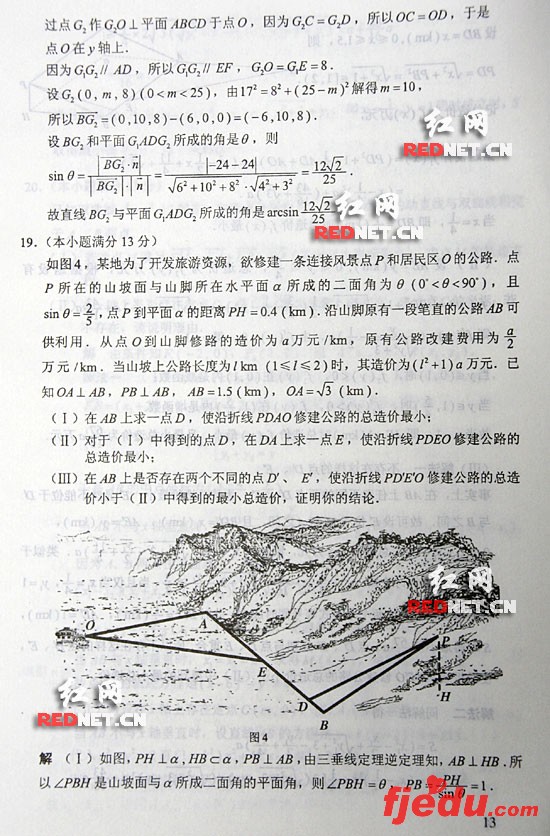 过点G₂作G₂O⊥平面ABCD于点O，因为G₂C=G₂D，所以OC=OD，于是
点O在y轴上.
因为G₁G₂// AD，所以G₁G₂// EF，G₂O=G₁E=8.
设G₂(0,m,8)(0<m<25)，由17²=8²+(25-m)²解得m=10，
所以BG₂=(0,10,8)-(6,0,0)=(-6,10,8).
设BG₂和平面G₁ADG₂所成的角是θ，则
sinθ=|BG₂·n|/|BG₂|·|n|=|-24-24|/√(6²+10²+8²)·√(4²+3²)=12√2/25.
故直线BG₂与平面G₁ADG₂所成的角是arcsin 12√2/25
19.（本小题满分13分）
如图4，某地为了开发旅游资源，欲修建一条连接风景点P和居民区O的公路.点
P所在的山坡面与山脚所在水平面α所成的二面角为θ(0°<θ<90°)，且
sinθ=2/5，点P到平面α的距离PH=0.4(km).沿山脚原有一段笔直的公路AB可
供利用.从点O到山脚修路的造价为a万元/km，原有公路改建费用为a/2
万元/km.当山坡上公路长度为l km(1≤l≤2)时，其造价为(l²+1)a万元.已
知OA⊥AB，PB⊥AB，AB=1.5(km)，OA=√3(km).
（Ⅰ）在AB上求一点D，使沿折线PDAO修建公路的总造价最小；
（Ⅱ）对于（Ⅰ）中得到的点D，在DA上求一点E，使沿折线PDEO修建公路的
总造价最小；
（Ⅲ）在AB上是否存在两个不同的点D′、E′，使沿折线PD′E′O修建公路的总造
价小于（Ⅱ）中得到的最小总造价，证明你的结论.
O
A
E
D
B
P
H
图4
解（Ⅰ）如图，PH⊥α，HB⊂α，PB⊥AB，由三垂线定理逆定理知，AB⊥HB.所
以∠PBH是山坡面与α所成二面角的平面角，则∠PBH=θ，PB=PH/sinθ=1.
13
红网
REDNET.CN
红网
REDNET.CN
红网
REDNET.CN
红网
REDNET.CN
fjedu.com